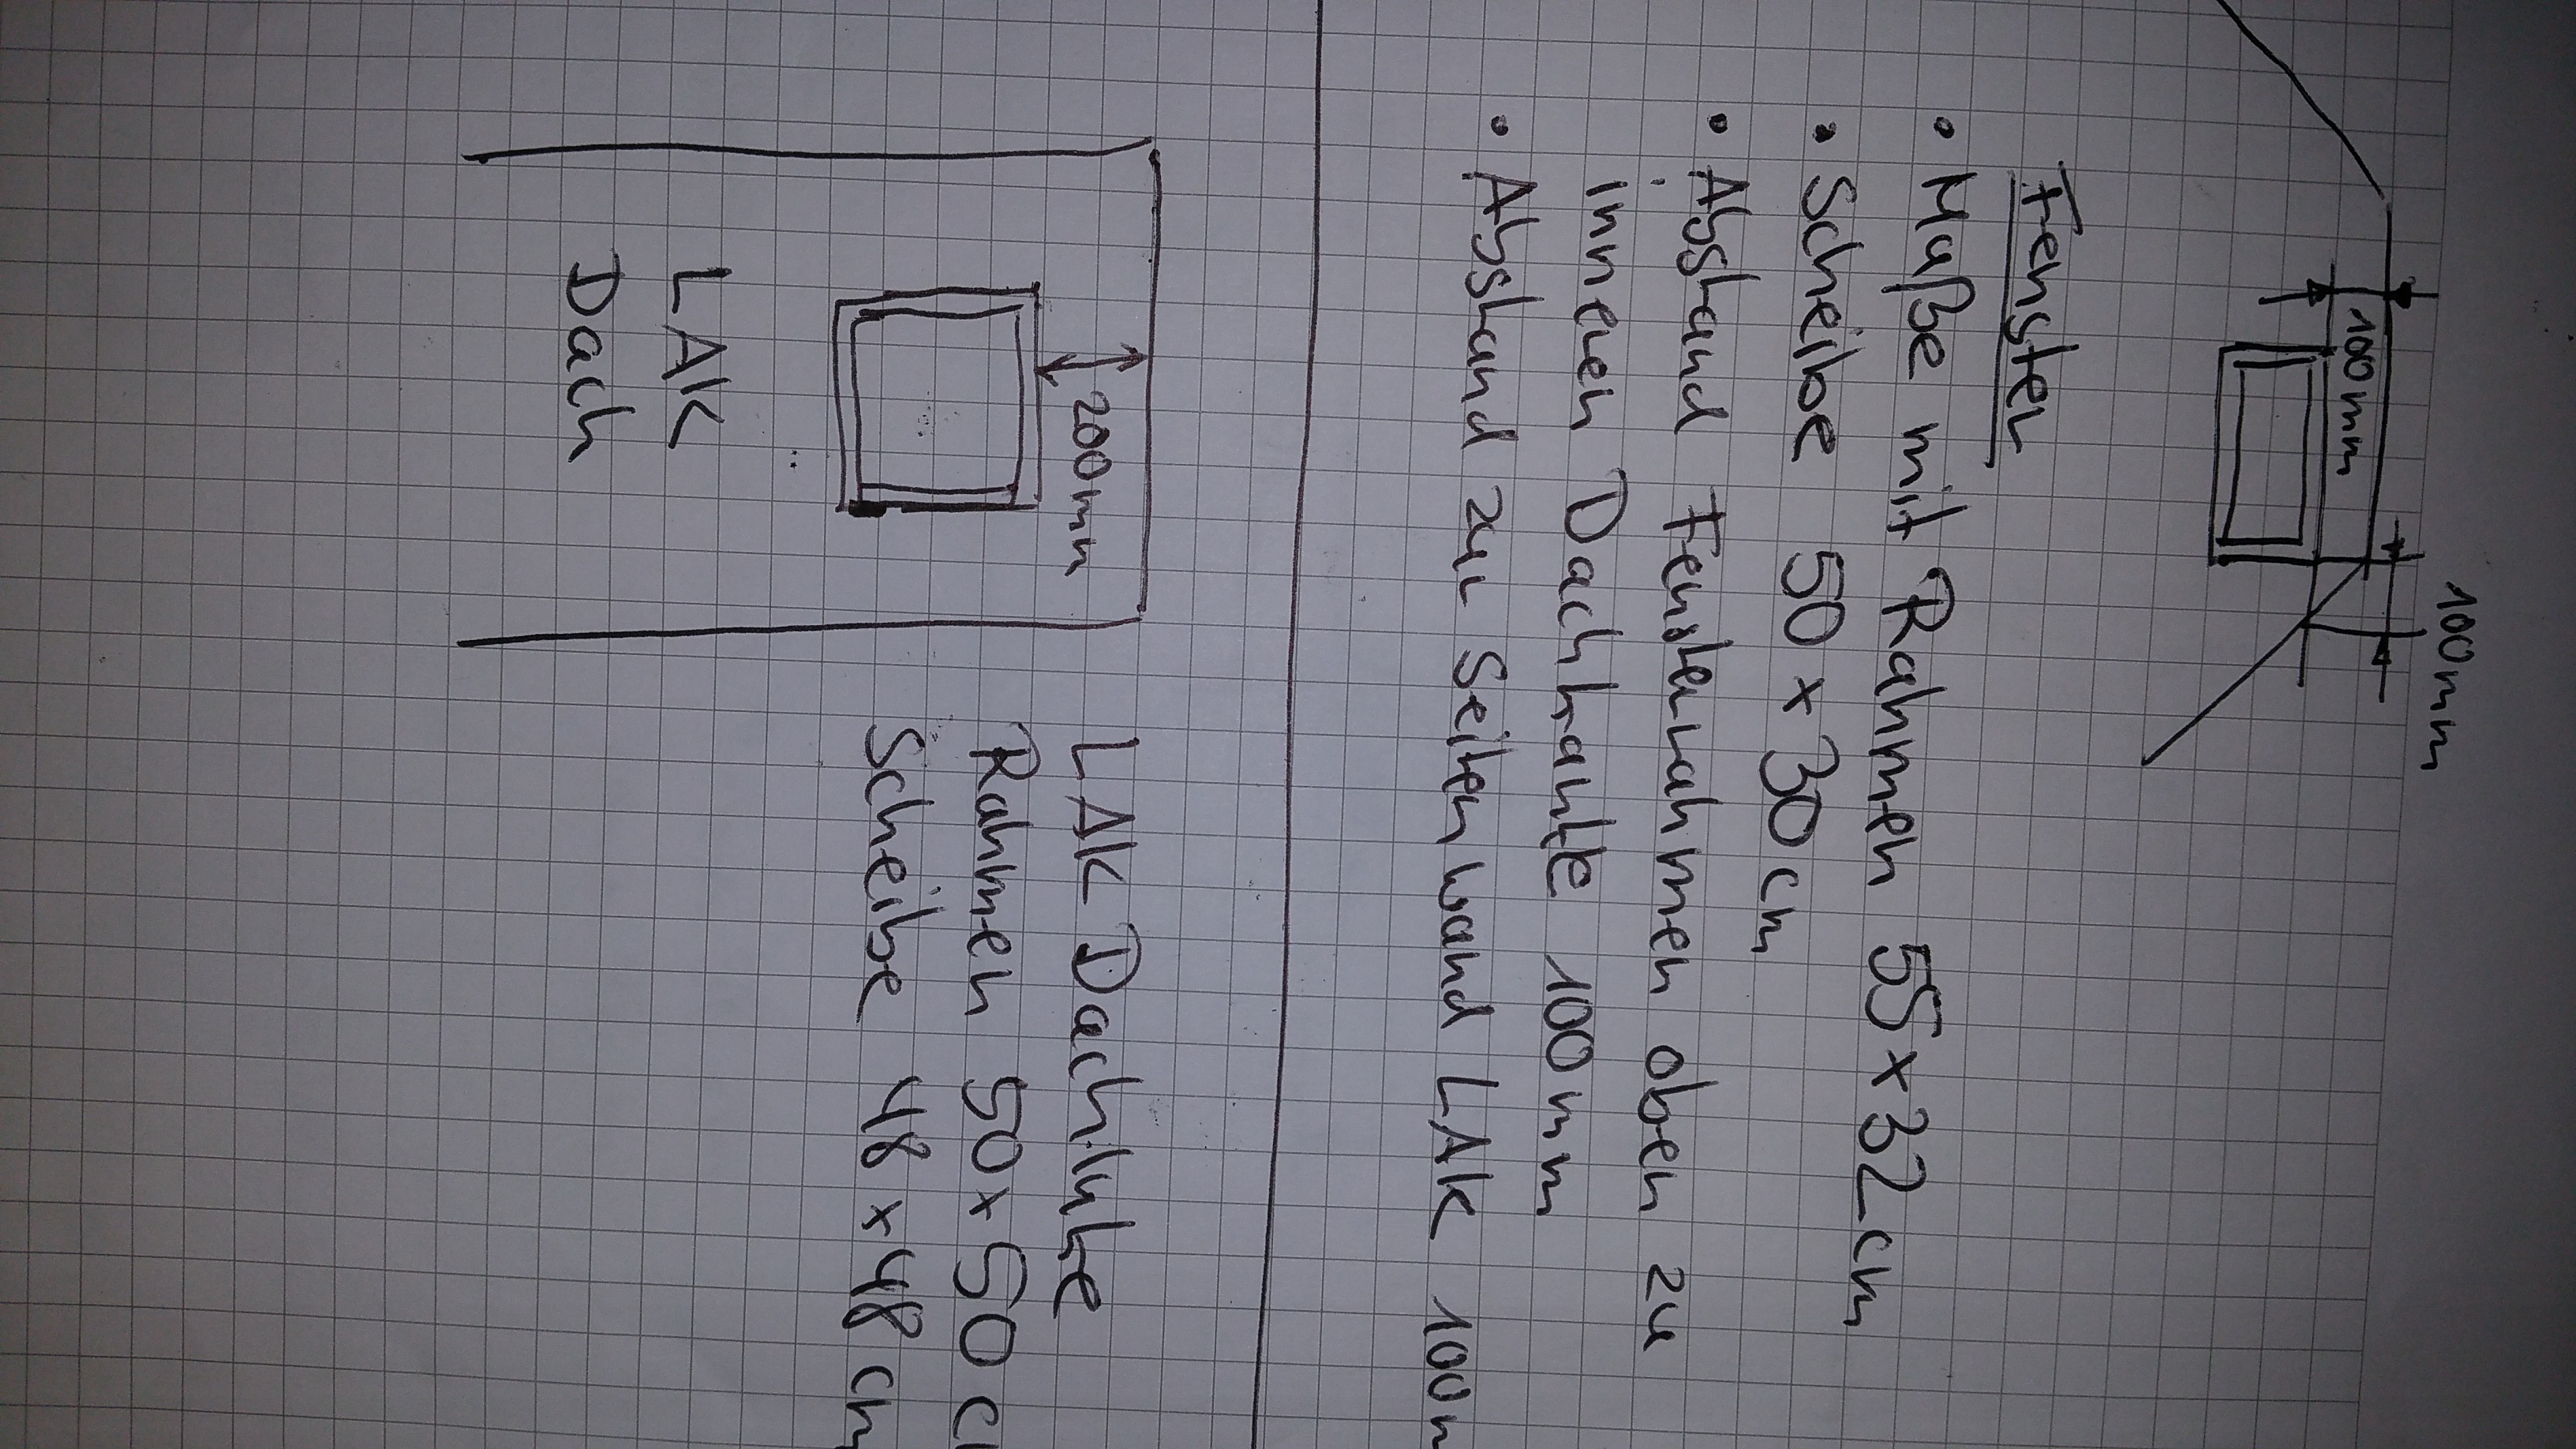 100mm
100mm
Fenster
• Maße mit Rahmen 55 x 32 cm
• Scheibe 50 x 30 cm
• Abstand Fensterrahmen oben zu
inneren Dachkante 100mm
• Abstand zu Seitenwand LAK 100m
200mm
LAK
Dach
LAK Dachluke
Rahmen 50 x 50 c
Scheibe 48 x 48 cm